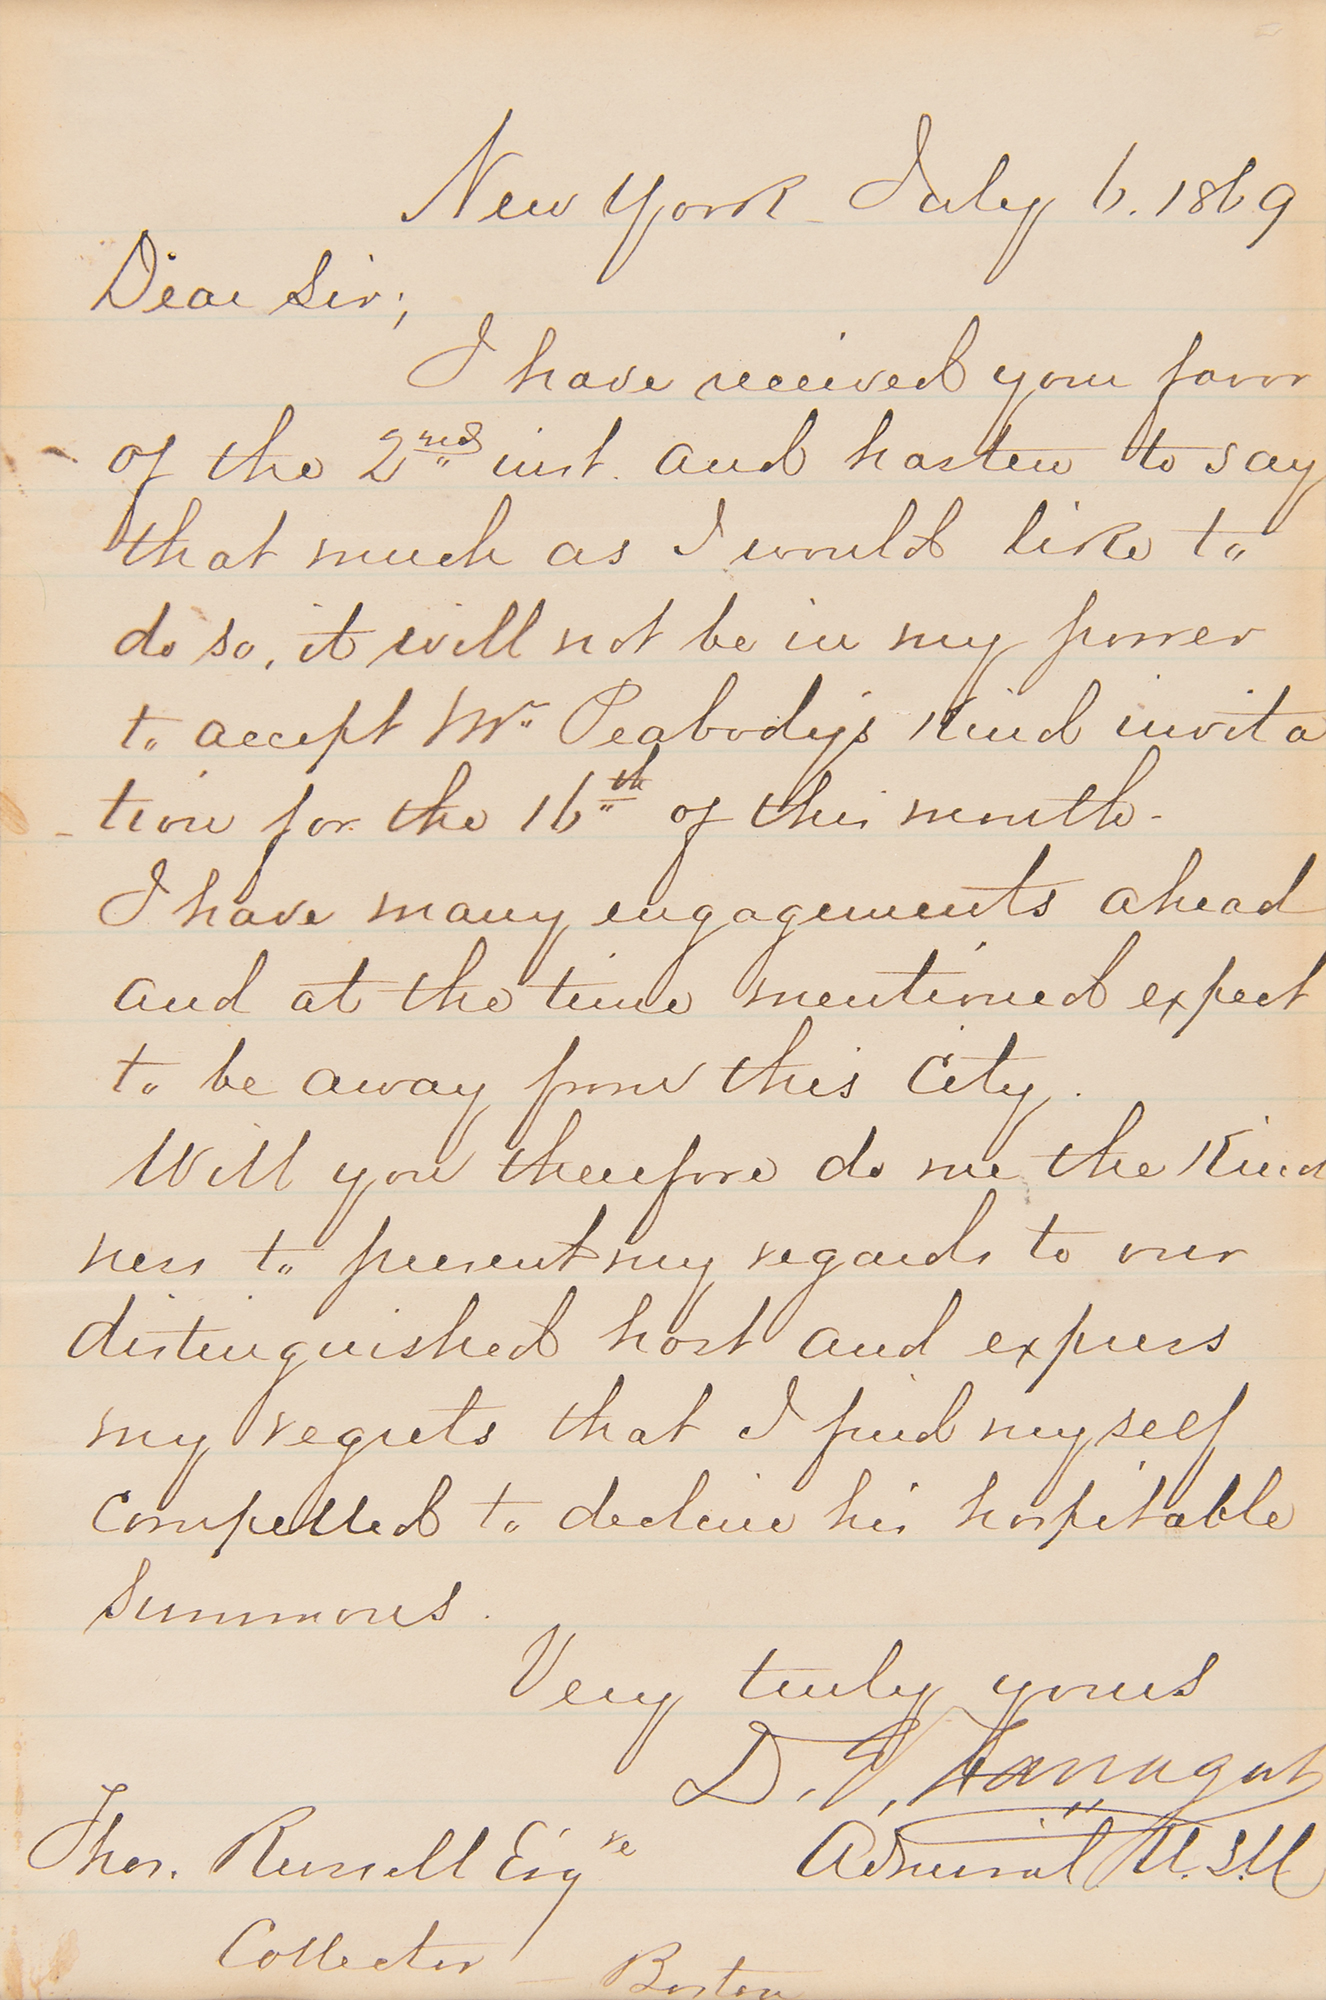 New York July 6. 1869
Dear Sir;
I have received your favor
of the 2nd inst. and hasten to say
that much as I would like to
do so, it will not be in my power
to accept Mr. Peabody's kind invita
tion for the 16th of this month -
I have many engagements ahead
and at the time mentioned expect
to be away from this City.
Will you therefore do me the Kind
ness to present my regards to our
distinguished host and express
my regrets that I find myself
compelled to decline his hospitable
summons.
Very truly yours
D. G. Farragut
Admiral U.S.N
Thos. Russell Esqre
Collector - Boston